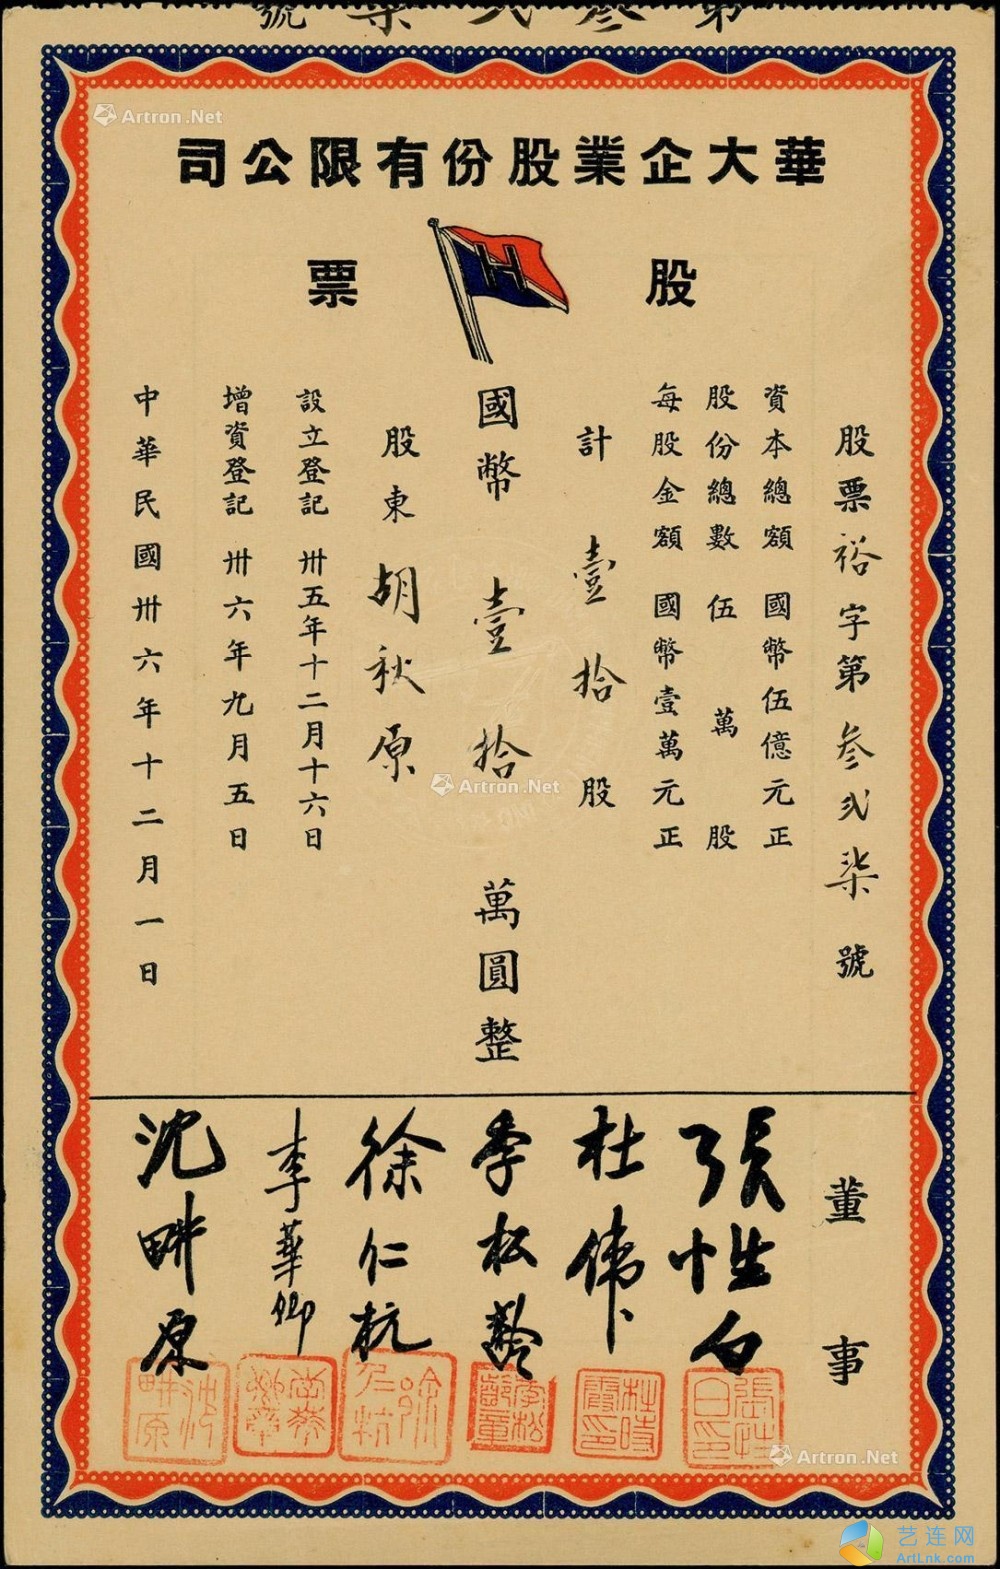 第叁弍柒號
華大企業股份有限公司
股票
H
股票裕字第叁弍柒號
資本總額 國幣伍億元正
股份總數 伍萬股
每股金額 國幣壹萬元正
計壹拾股
國幣壹拾萬圓整
股東胡秋原
設立登記 卅五年十二月十六日
增資登記 卅六年九月五日
中華民國卅六年十二月一日
董事
張性白
杜偉
季松齡
徐仁杭
李華卿
沈畊原
張性白印
徐仁杭
沈畊原
Artron.Net
Artron.Net
Artron.Net
艺连网
ArtLnk.com